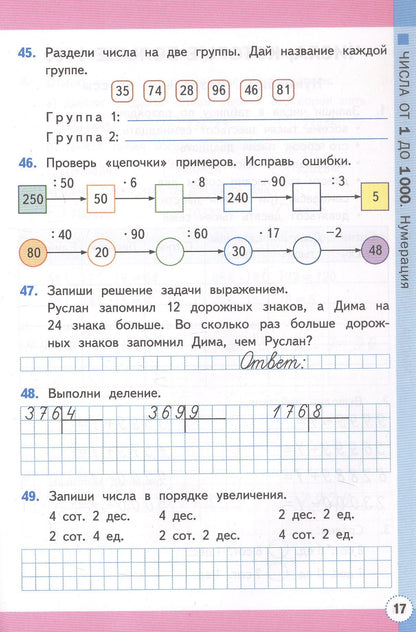 45. Раздели числа на две группы. Дай название каждой
группе.
35 74 28 96 46 81
Группа 1:
Группа 2:
46. Проверь «цепочки» примеров. Исправь ошибки.
: 50 · 6 · 8 −90 : 3
250 50 240 5
: 40 · 90 : 60 · 17 −2
80 20 30 48
47. Запиши решение задачи выражением.
Руслан запомнил 12 дорожных знаков, а Дима на
24 знака больше. Во сколько раз больше дорож-
ных знаков запомнил Дима, чем Руслан?
Ответ:
48. Выполни деление.
376 4 369 9 176 8
49. Запиши числа в порядке увеличения.
4 сот. 2 дес. 4 дес. 2 дес. 2 ед.
2 сот. 4 ед. 2 сот. 2 дес. 4 сот. 2 ед.
17
ЧИСЛА ОТ 1 ДО 1000. Нумерация